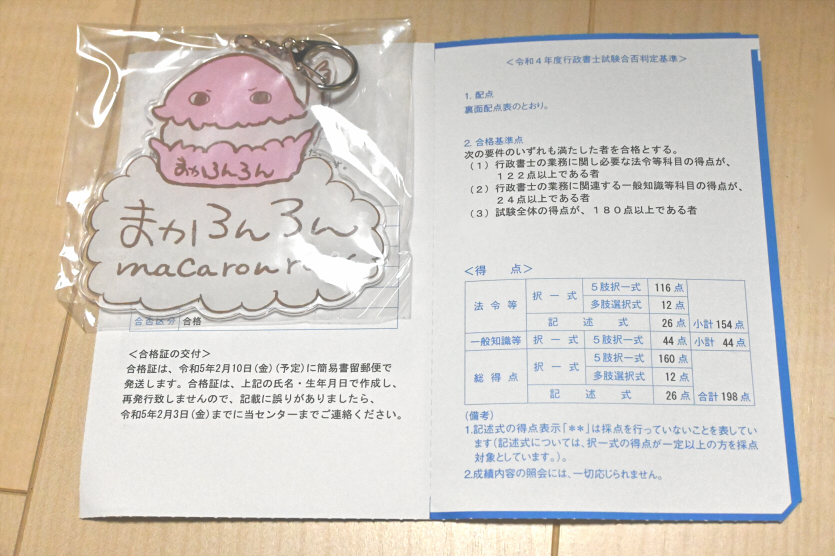 まかろんろん
まかろんろん
macaron
合否区分 合格
＜合格証の交付＞
合格証は、令和5年2月10日(金)(予定)に簡易書留郵便で
発送します。合格証は、上記の氏名・生年月日で作成し、
再発行致しませんので、記載に誤りがありましたら、
令和5年2月3日(金)までに当センターまでご連絡ください。
＜令和４年度行政書士試験合否判定基準＞
1. 配点
裏面配点表のとおり。
2. 合格基準点
次の要件のいずれも満たした者を合格とする。
（１）行政書士の業務に関し必要な法令等科目の得点が、
１２２点以上である者
（２）行政書士の業務に関連する一般知識等科目の得点が、
２４点以上である者
（３）試験全体の得点が、１８０点以上である者
＜得 点＞
法令等 択一式 ５肢択一式 116 点
多肢選択式 12 点
記述式 26 点 小計 154 点
一般知識等 択一式 ５肢択一式 44 点 小計 44 点
総得点 択一式 ５肢択一式 160 点
多肢選択式 12 点
記述式 26 点 合計 198 点
(備考)
1.記述式の得点表示「＊＊」は採点を行っていないことを表してい
ます(記述式については、択一式の得点が一定以上の方を採点
対象としています。)。
2.成績内容の照会には、一切応じられません。